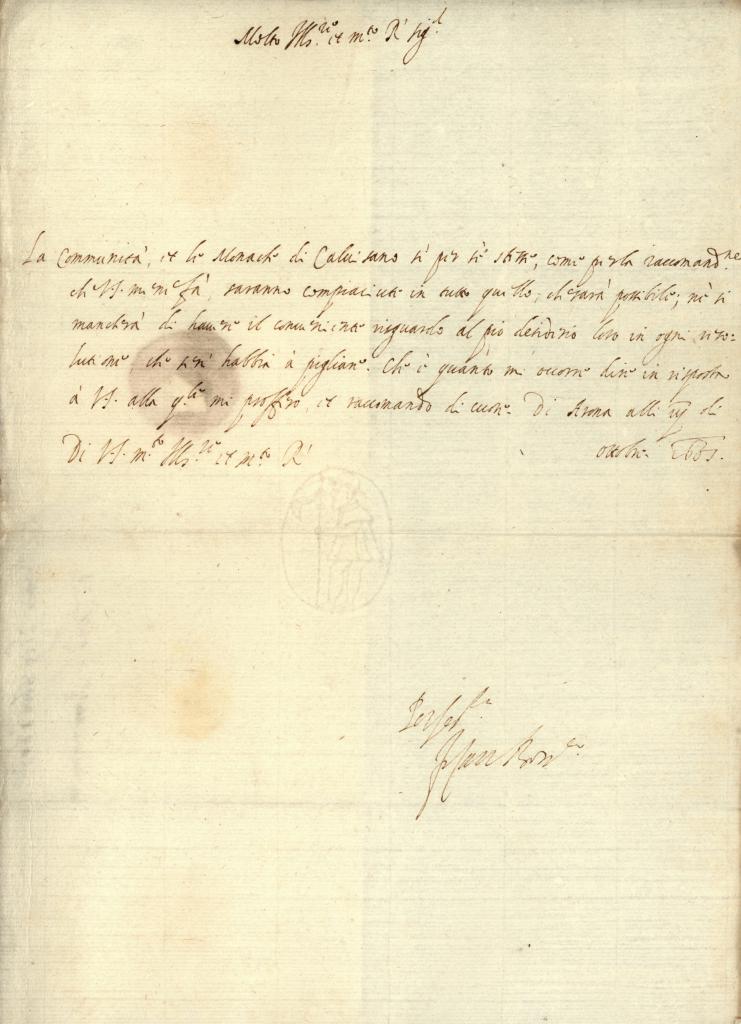 Molto Ill.re et m.to R.do Sig.r
La Communità, et le Monache di Caluisano sì per sè stesse, come per la raccomand.ne
che V.S. me ne fà, saranno compiaciute in tutto quello, che sarà possibile; nè si
mancherà di hauere il conueniente risguardo al pio desiderio loro in ogni riso=
lutione, che se n' habbia à pigliare. Che è quanto mi occorre dire in risposta
à V.S. alla q.le mi proffero, et raccomando di cuore. Di Arona alli di
Di V.S. m.to Ill.re et m.to R.
ottobre